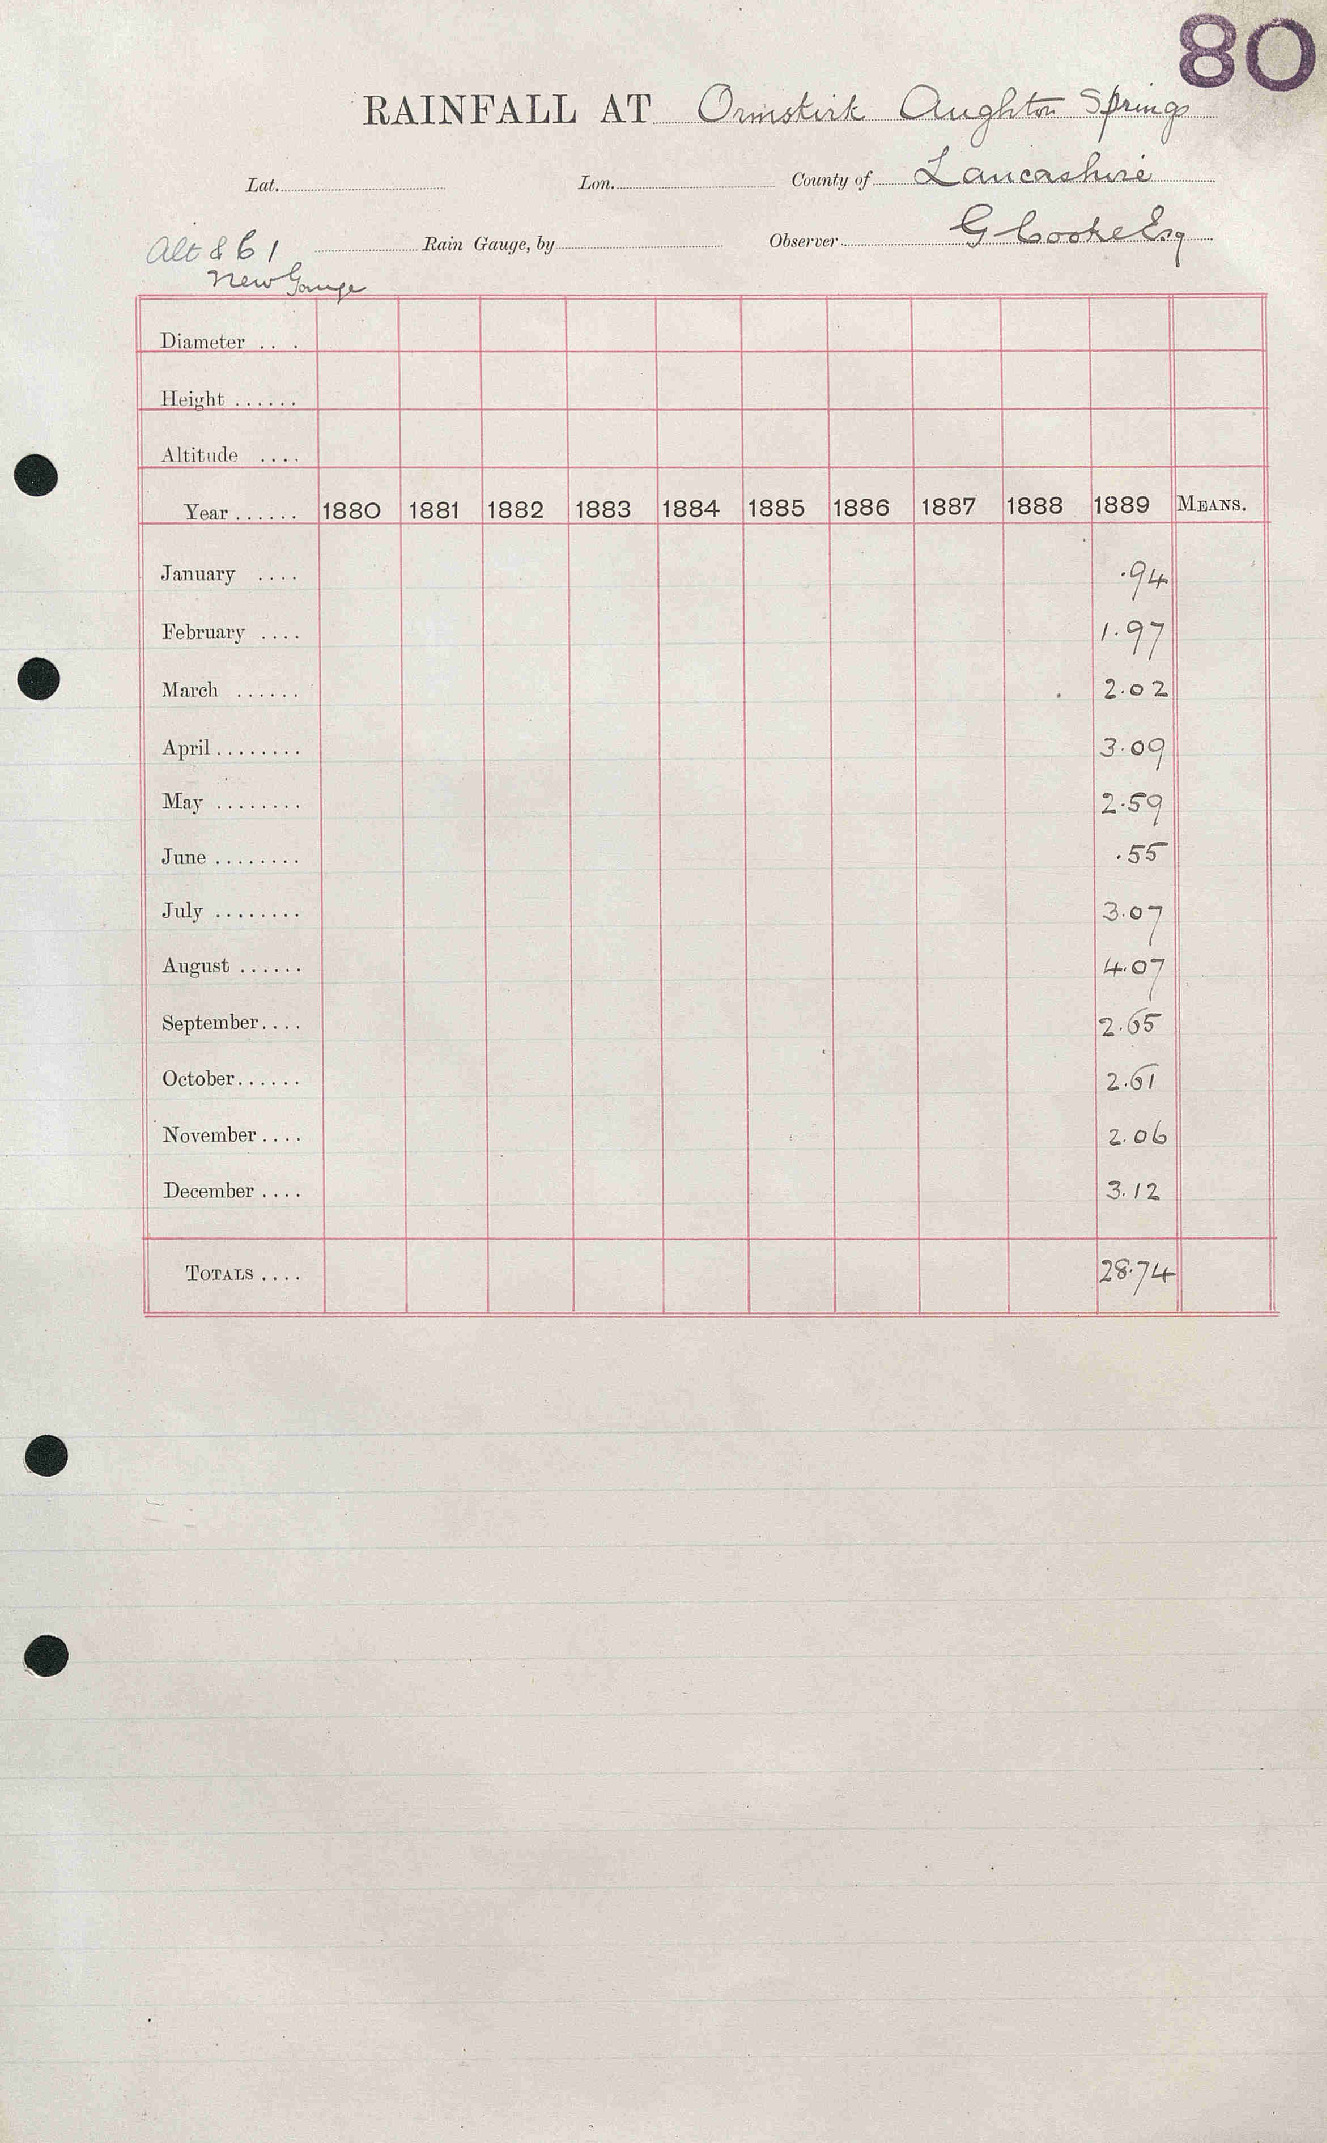 80
RAINFALL AT Ormskirk Aughton Springs
Lat. Lon. County of Lancashire
Alt Rain Gauge, by Observer G Cooke Esq
New Gauge
Diameter ...
Height ......
Altitude ....
Year ...... 1880 1881 1882 1883 1884 1885 1886 1887 1888 1889 MEANS.
January .... .94
February .... 1.97
March ...... 2.02
April ........ 3.09
May ........ 2.59
June ........ .55
July ........ 3.07
August ...... 4.07
September.... 2.65
October...... 2.61
November.... 2.06
December.... 3.12
TOTALS .... 28.74